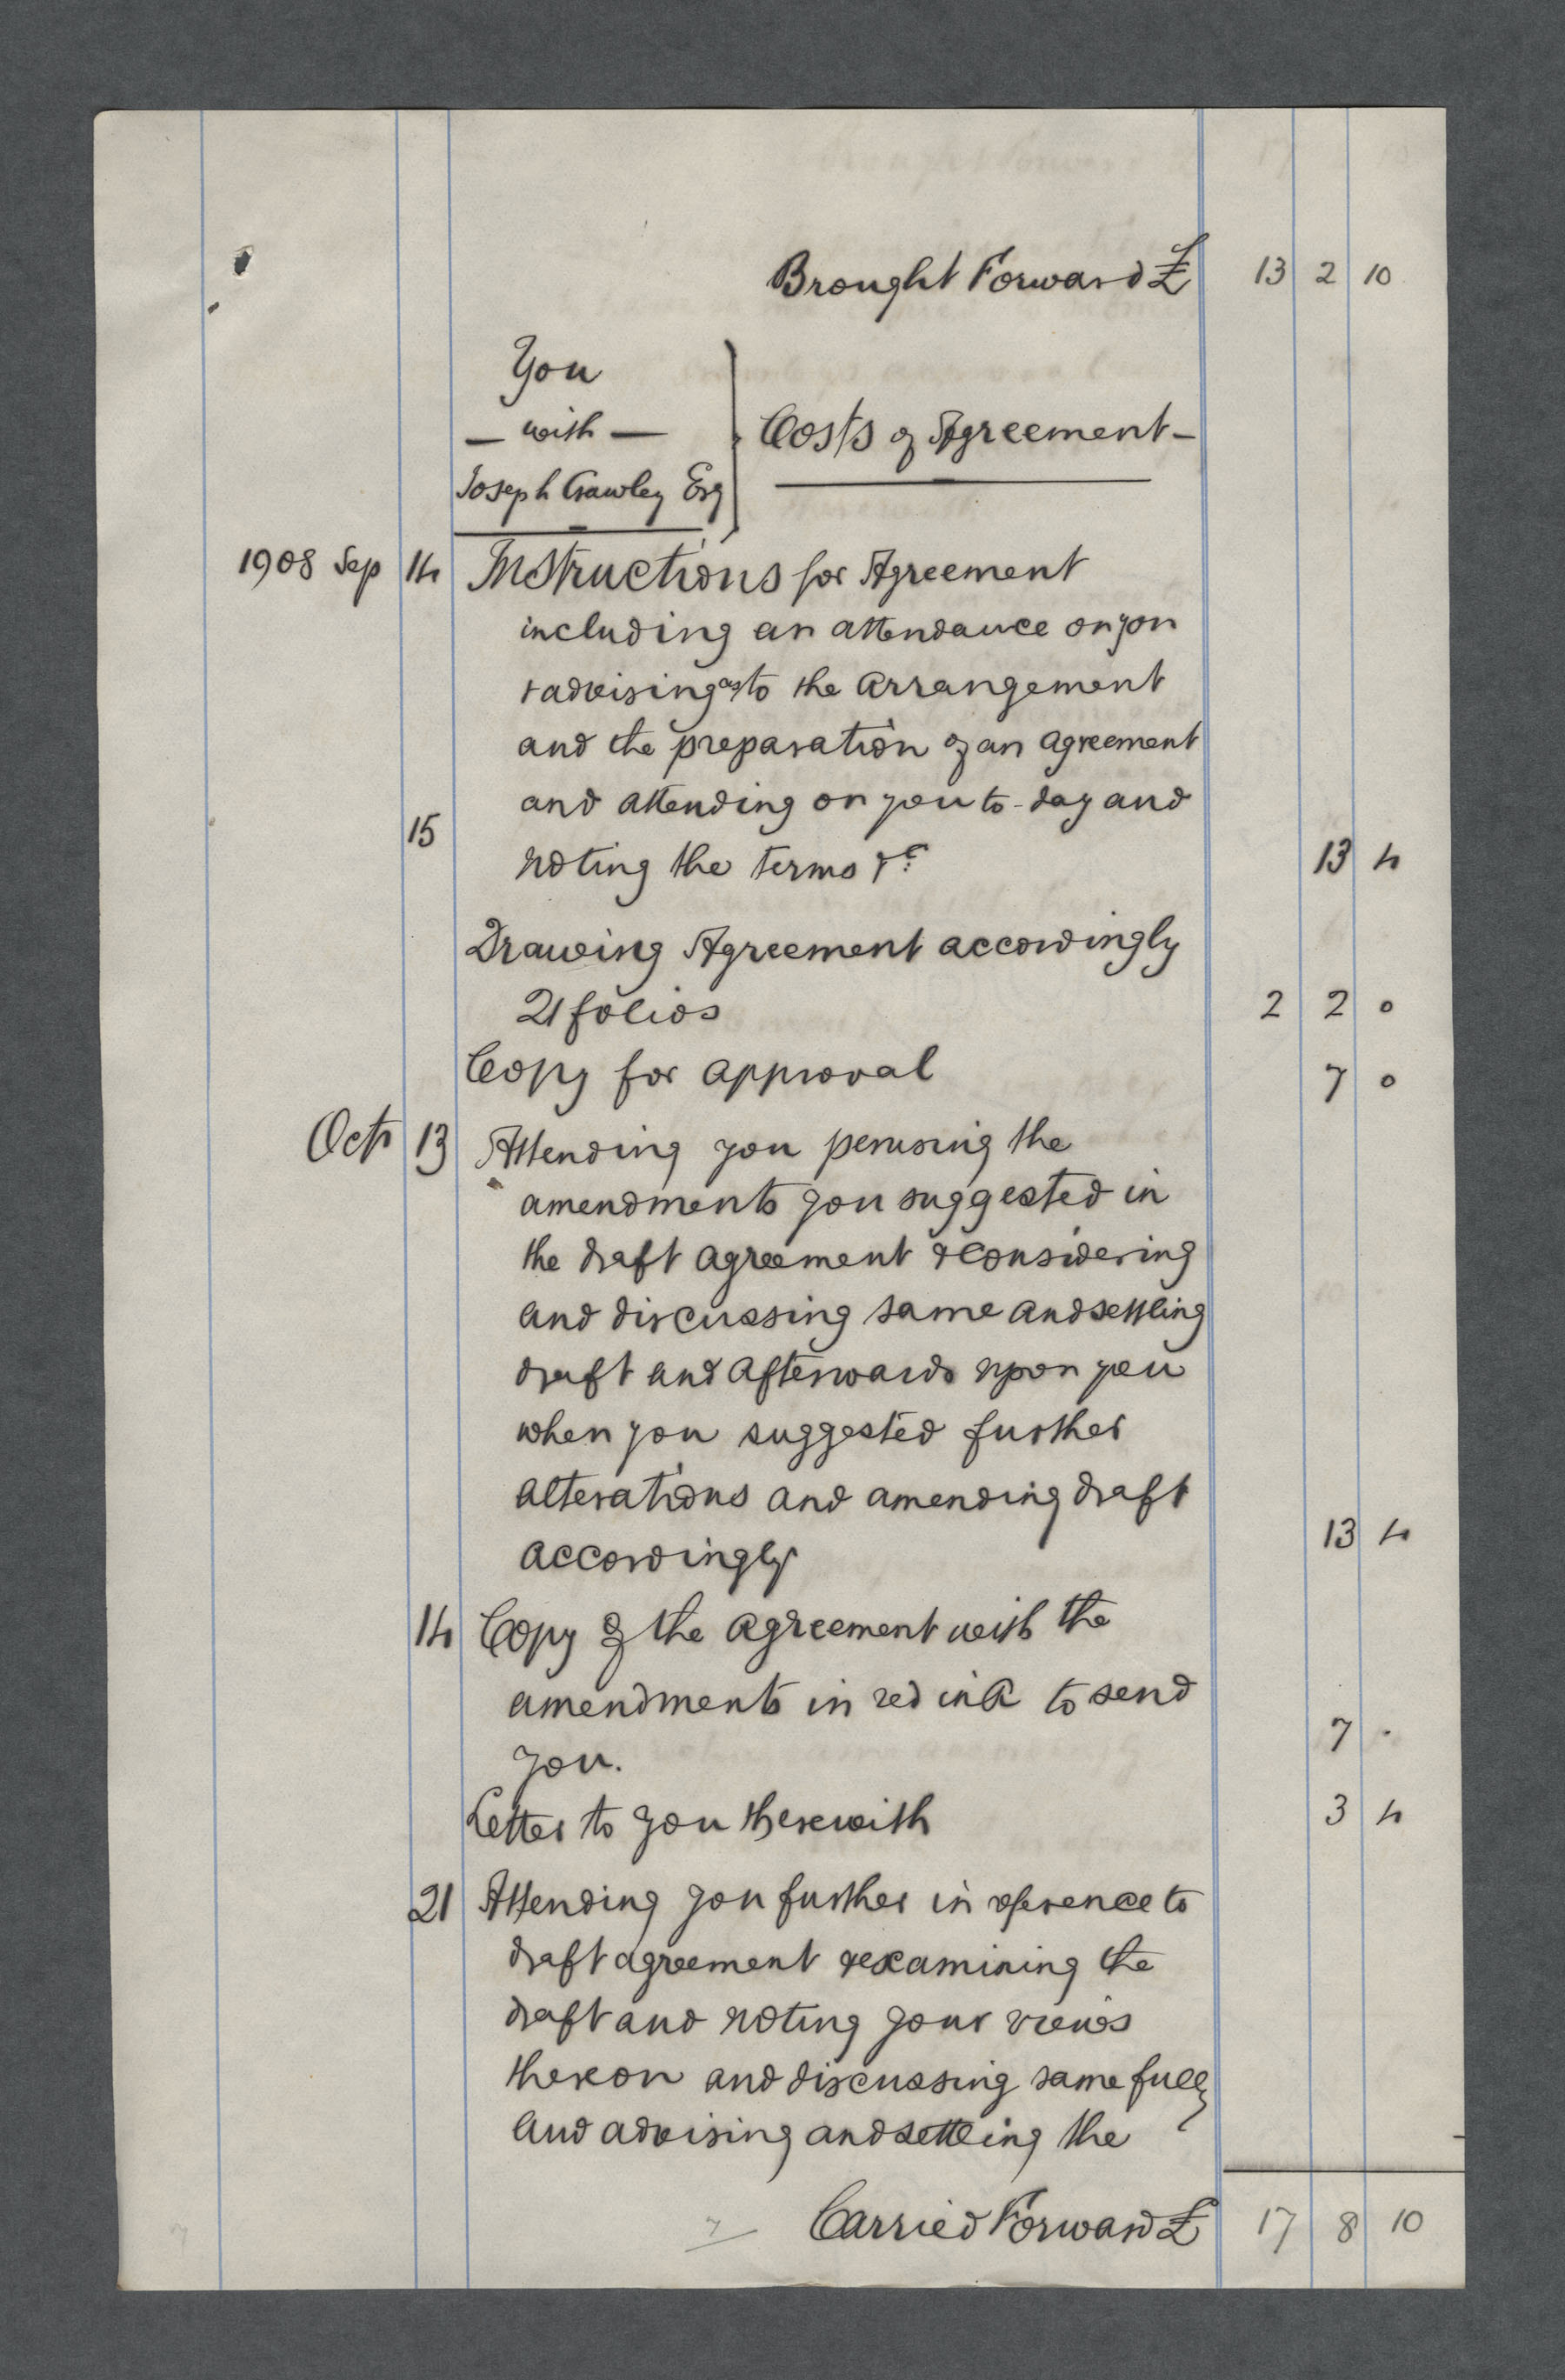 Brought Forward £ 13 2 10
You
— with —
Joseph Crawley Esq
Costs of Agreement —
1908 Sep 14 Instructions for Agreement
including an attendance on you
& advising as to the arrangement
and the preparation of an agreement
and attending on you to-day and
15 noting the terms &c: 13 4
Drawing Agreement accordingly
21 folios 2 2 0
Copy for approval 7 0
Octr 13 Attending you perusing the
amendments you suggested in
the draft agreement & considering
and discussing same and settling
draft and afterwards upon you
when you suggested further
alterations and amending draft
accordingly 13 4
14 Copy of the agreement with the
amendments in red ink to send
you. 7 .
Letter to you therewith 3 4
21 Attending you further in reference to
draft agreement & examining the
draft and noting your views
thereon and discussing same fully
and advising and settling the
7 Carried Forward £ 17 8 10